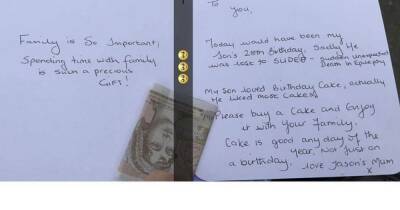 Family is So Important,
Spending time with family
is such a precious
GIFT!
To
You,
Today would have been my
Son's 28th Birthday. Sadly He
was lost to SUDEP - Sudden Unexpected
Death in Epilepsy
My son loved Birthday Cake, actually
He liked most Cakes!
Please buy a Cake and Enjoy
it with your Family.
Cake is good any day of the
year, Not just on
a birthday. love Jason's Mum
x